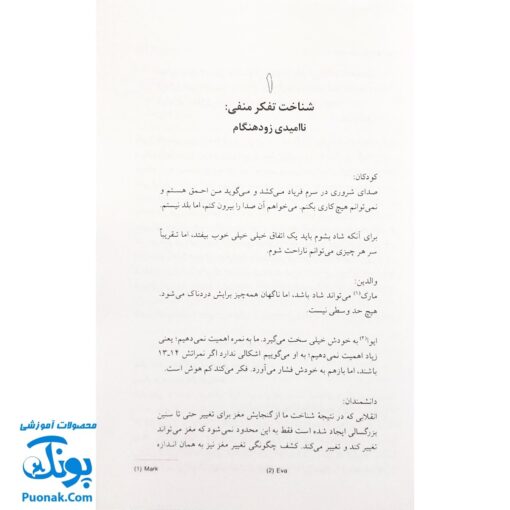 ۱
شناخت تفکر منفی:
ناامیدی زودهنگام
کودکان:
صدای شروری در سرم فریاد می‌کشد و می‌گوید من احمق هستم و
نمی‌توانم هیچ کاری بکنم. می‌خواهم آن صدا را بیرون کنم، اما بلد نیستم.
برای آنکه شاد بشوم باید یک اتفاق خیلی خیلی خوب بیفتد، اما تقریباً
سر هر چیزی می‌توانم ناراحت شوم.
والدین:
مارک(۱) می‌تواند شاد باشد، اما ناگهان همه‌چیز برایش دردناک می‌شود.
هیچ حد وسطی نیست.
ایوا(۲) به خودش خیلی سخت می‌گیرد. ما به نمره اهمیت نمی‌دهیم؛ یعنی
زیاد اهمیت نمی‌دهیم؛ به او می‌گوییم اشکالی ندارد اگر نمراتش ۱۴ـ۱۳
باشند، اما بازهم به خودش فشار می‌آورد. فکر می‌کند کم هوش است.
دانشمندان:
انقلابی که در نتیجهٔ شناخت ما از گنجایش مغز برای تغییر حتی تا سنین
بزرگسالی ایجاد شده است فقط به این محدود نمی‌شود که مغز می‌تواند
تغییر کند و تغییر می‌کند. کشف چگونگی تغییر مغز نیز به همان اندازه
(1) Mark (2) Eva
محصولات آموزشی
پونک
Puonak.Com